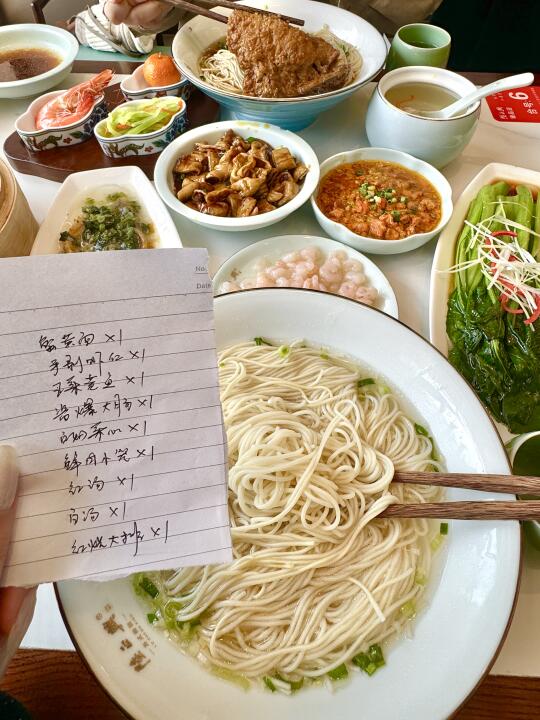 No.
Date
蟹黄面 ×1
手剥虾仁 ×1
玉菜煮鱼 ×1
酱爆大肠 ×1
白灼菜心 ×1
鲜肉小笼 ×1
红汤 ×1
白汤 ×1
红烧大排 ×1
6